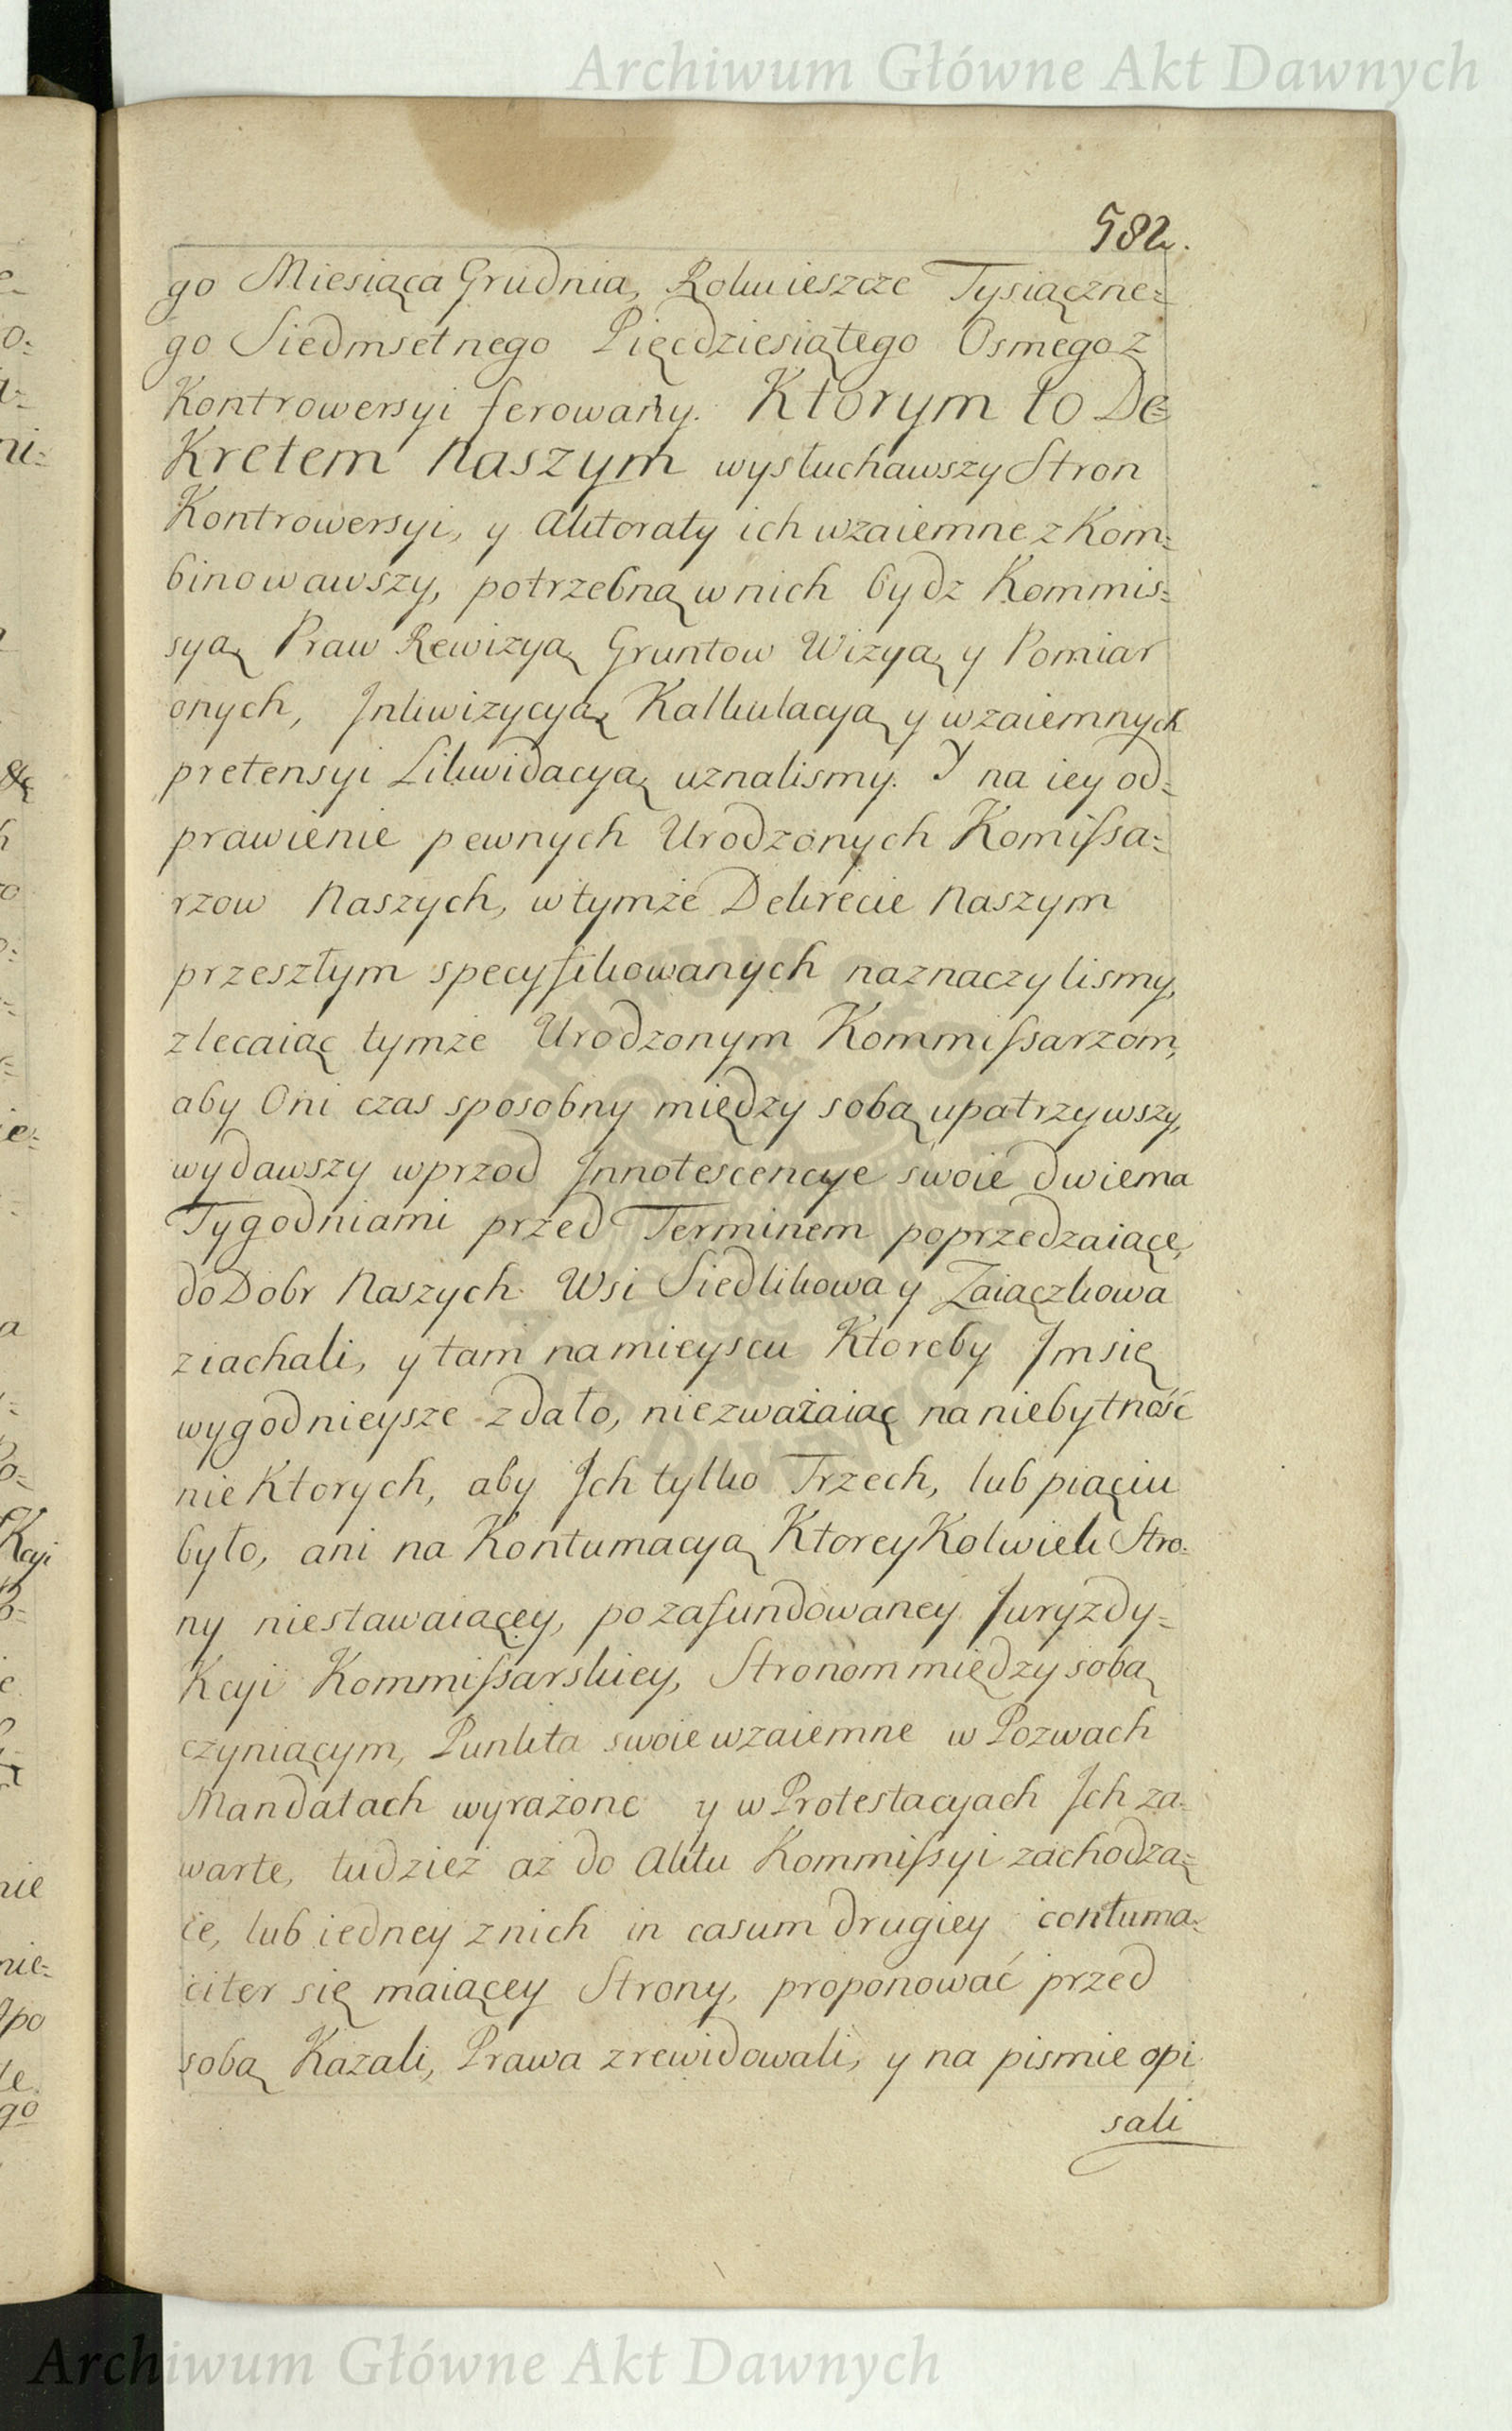 Archiwum Główne Akt Dawnych
582.
go Miesiąca Grudnia, Roku ieszcze Tysiączne=
go Siedmsetnego Pięcdziesiątego Osmego z
Kontrowersyi ferowany. Ktorym to De=
Kretem Naszym wysłuchawszy Stron
Kontrowersyi, y Aktoraty ich wzaiemne z Kom=
binowawszy, potrzebną w nich bydz Kommis=
syą, Praw Rewizyą, Gruntow Wizyą, y Pomiar
onych, Inkwizycyą, Kalkulacyą, y wzaiemnych
pretensyi Likwidacyą uznalismy. Y na iey od=
prawienie pewnych Urodzonych Komissa=
rzow Naszych, w tymże Dekrecie Naszym
przeszłym specyfikowanych naznaczylismy,
zlecaiąc tymże Urodzonym Kommissarzom,
aby Oni czas sposobny między sobą upatrzywszy,
wydawszy wprzod Innotescencye swoie dwiema
Tygodniami przed Terminem poprzedzaiące,
do Dobr Naszych Wsi Siedlikowa y Zaiączkowa
ziachali, y tam na mieyscu Ktoreby Im się
wygodnieysze zdało, niezważaiąc na niebytność
nie Ktorych, aby Ich tylko Trzech, lub piąciu
było, ani na Kontumacyą KtoreyKolwiek Stro=
ny niestawaiącey, po zafundowaney Juryzdy=
Kcyi Kommissarskiey, Stronom między sobą
czyniącym, Punkta swoie wzaiemne w Pozwach
Mandatach wyrażone y w Protestacyach Ich za=
warte, tudzież aż do Aktu Kommissyi zachodzą=
ce, lub iedney z nich in casum drugiey contuma=
citer się maiącey Strony, proponować przed
sobą Kazali, Prawa zrewidowali, y na pismie opi
sali
Archiwum Główne Akt Dawnych